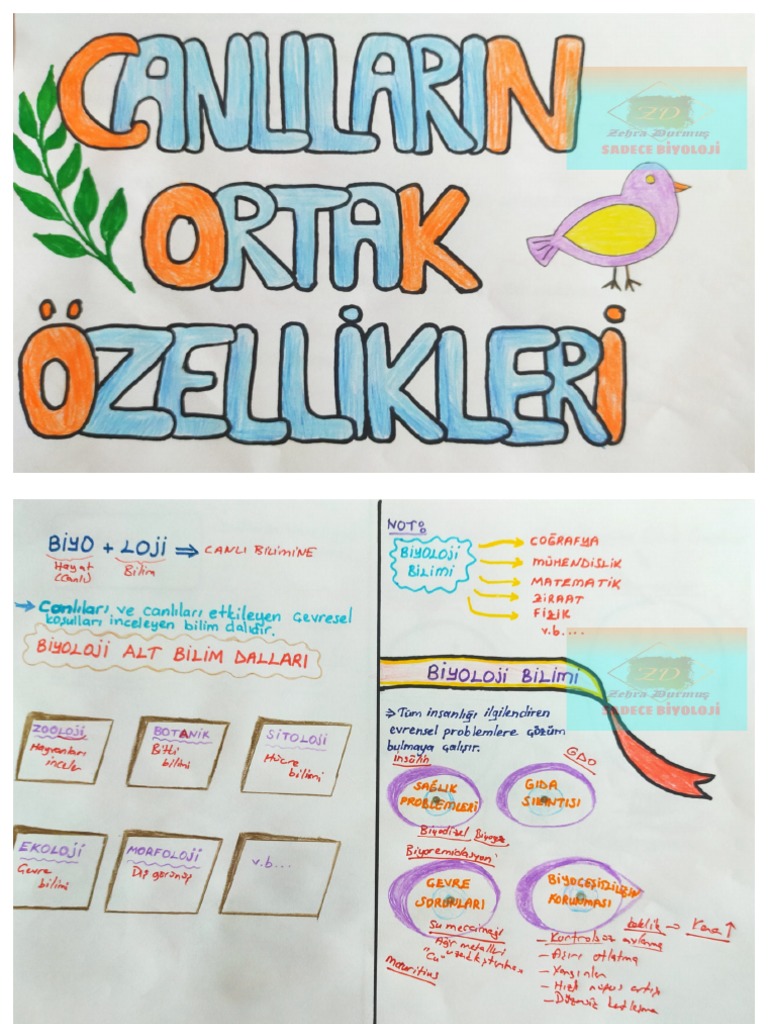 CANLILARIN
ORTAK
ÖZELLİKLERİ
ZD
Zehra Durmuş
SADECE BİYOLOJİ
BİYO + LOJİ ⇒ CANLI BİLİMİNE
Hayat Bilim
(Canlı)
→ Canlıları ve canlıları etkileyen çevresel
koşulları inceleyen bilim dalıdır.
BİYOLOJİ ALT BİLİM DALLARI
ZOOLOJİ
Hayvanları
inceler
BOTANİK
Bitki
bilimi
SİTOLOJİ
Hücre
bilimi
EKOLOJİ
Çevre
bilimi
MORFOLOJİ
Dış görünüş
v.b...
NOT:
BİYOLOJİ
BİLİMİ
COĞRAFYA
MÜHENDİSLİK
MATEMATİK
ZİRAAT
FİZİK
v.b....
BİYOLOJİ BİLİMİ
ZD
Zehra Durmuş
SADECE BİYOLOJİ
⇒ Tüm insanlığı ilgilendiren
evrensel problemlere çözüm
bulmaya çalışır.
İnsülin
GDO
SAĞLIK
PROBLEMLERİ
GIDA
SIKINTISI
Biyodizel Biyogaz
ÇEVRE
SORUNLARI
BİYOÇEŞİTLİLİĞİN
KORUNMASI
Su mercimeği
Ağır metalleri
"Cu"
Mauritius
keklik → Kene ↑
- Kontrolsüz avlanma
- Aşırı otlatma
- Yangınlar
- Hızlı nüfus artışı
- Düzensiz kentleşme